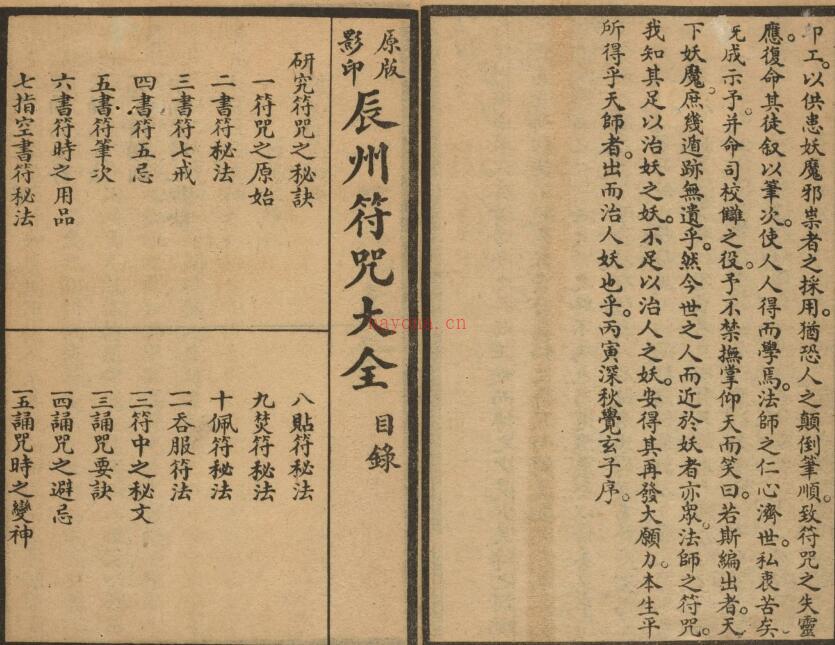 卬工。以供患妖魔邪祟者之採用。猶恐人之顛倒筆順。致符咒之失靈
應。復命其徒叙以筆次。使人人得而學焉。法師之仁心濟世。私衷苦矣。
旣成示予。并命司校讎之役。予不禁撫掌仰天而笑曰。若斯編出者。天
下妖魔。庶幾遁跡無遺乎。然今世之人而近於妖者亦眾。法師之符咒。
我知其足以治妖之妖。不足以治人之妖。安得其再發大願力。本生平
所得乎天師者。出而治人妖也乎。丙寅深秋覺玄子序。
原版
影印
辰州符咒大全 目錄
研究符咒之秘訣
一符咒之原始
二書符秘法
三書符七戒
四書符五忌
五書符筆次
六書符時之用品
七指空書符秘法
八貼符秘法
九焚符秘法
十佩符秘法
一一吞服符法
一二符中之秘文
一三誦咒要訣
一四誦咒之避忌
一五誦咒時之變神
nayona.cn